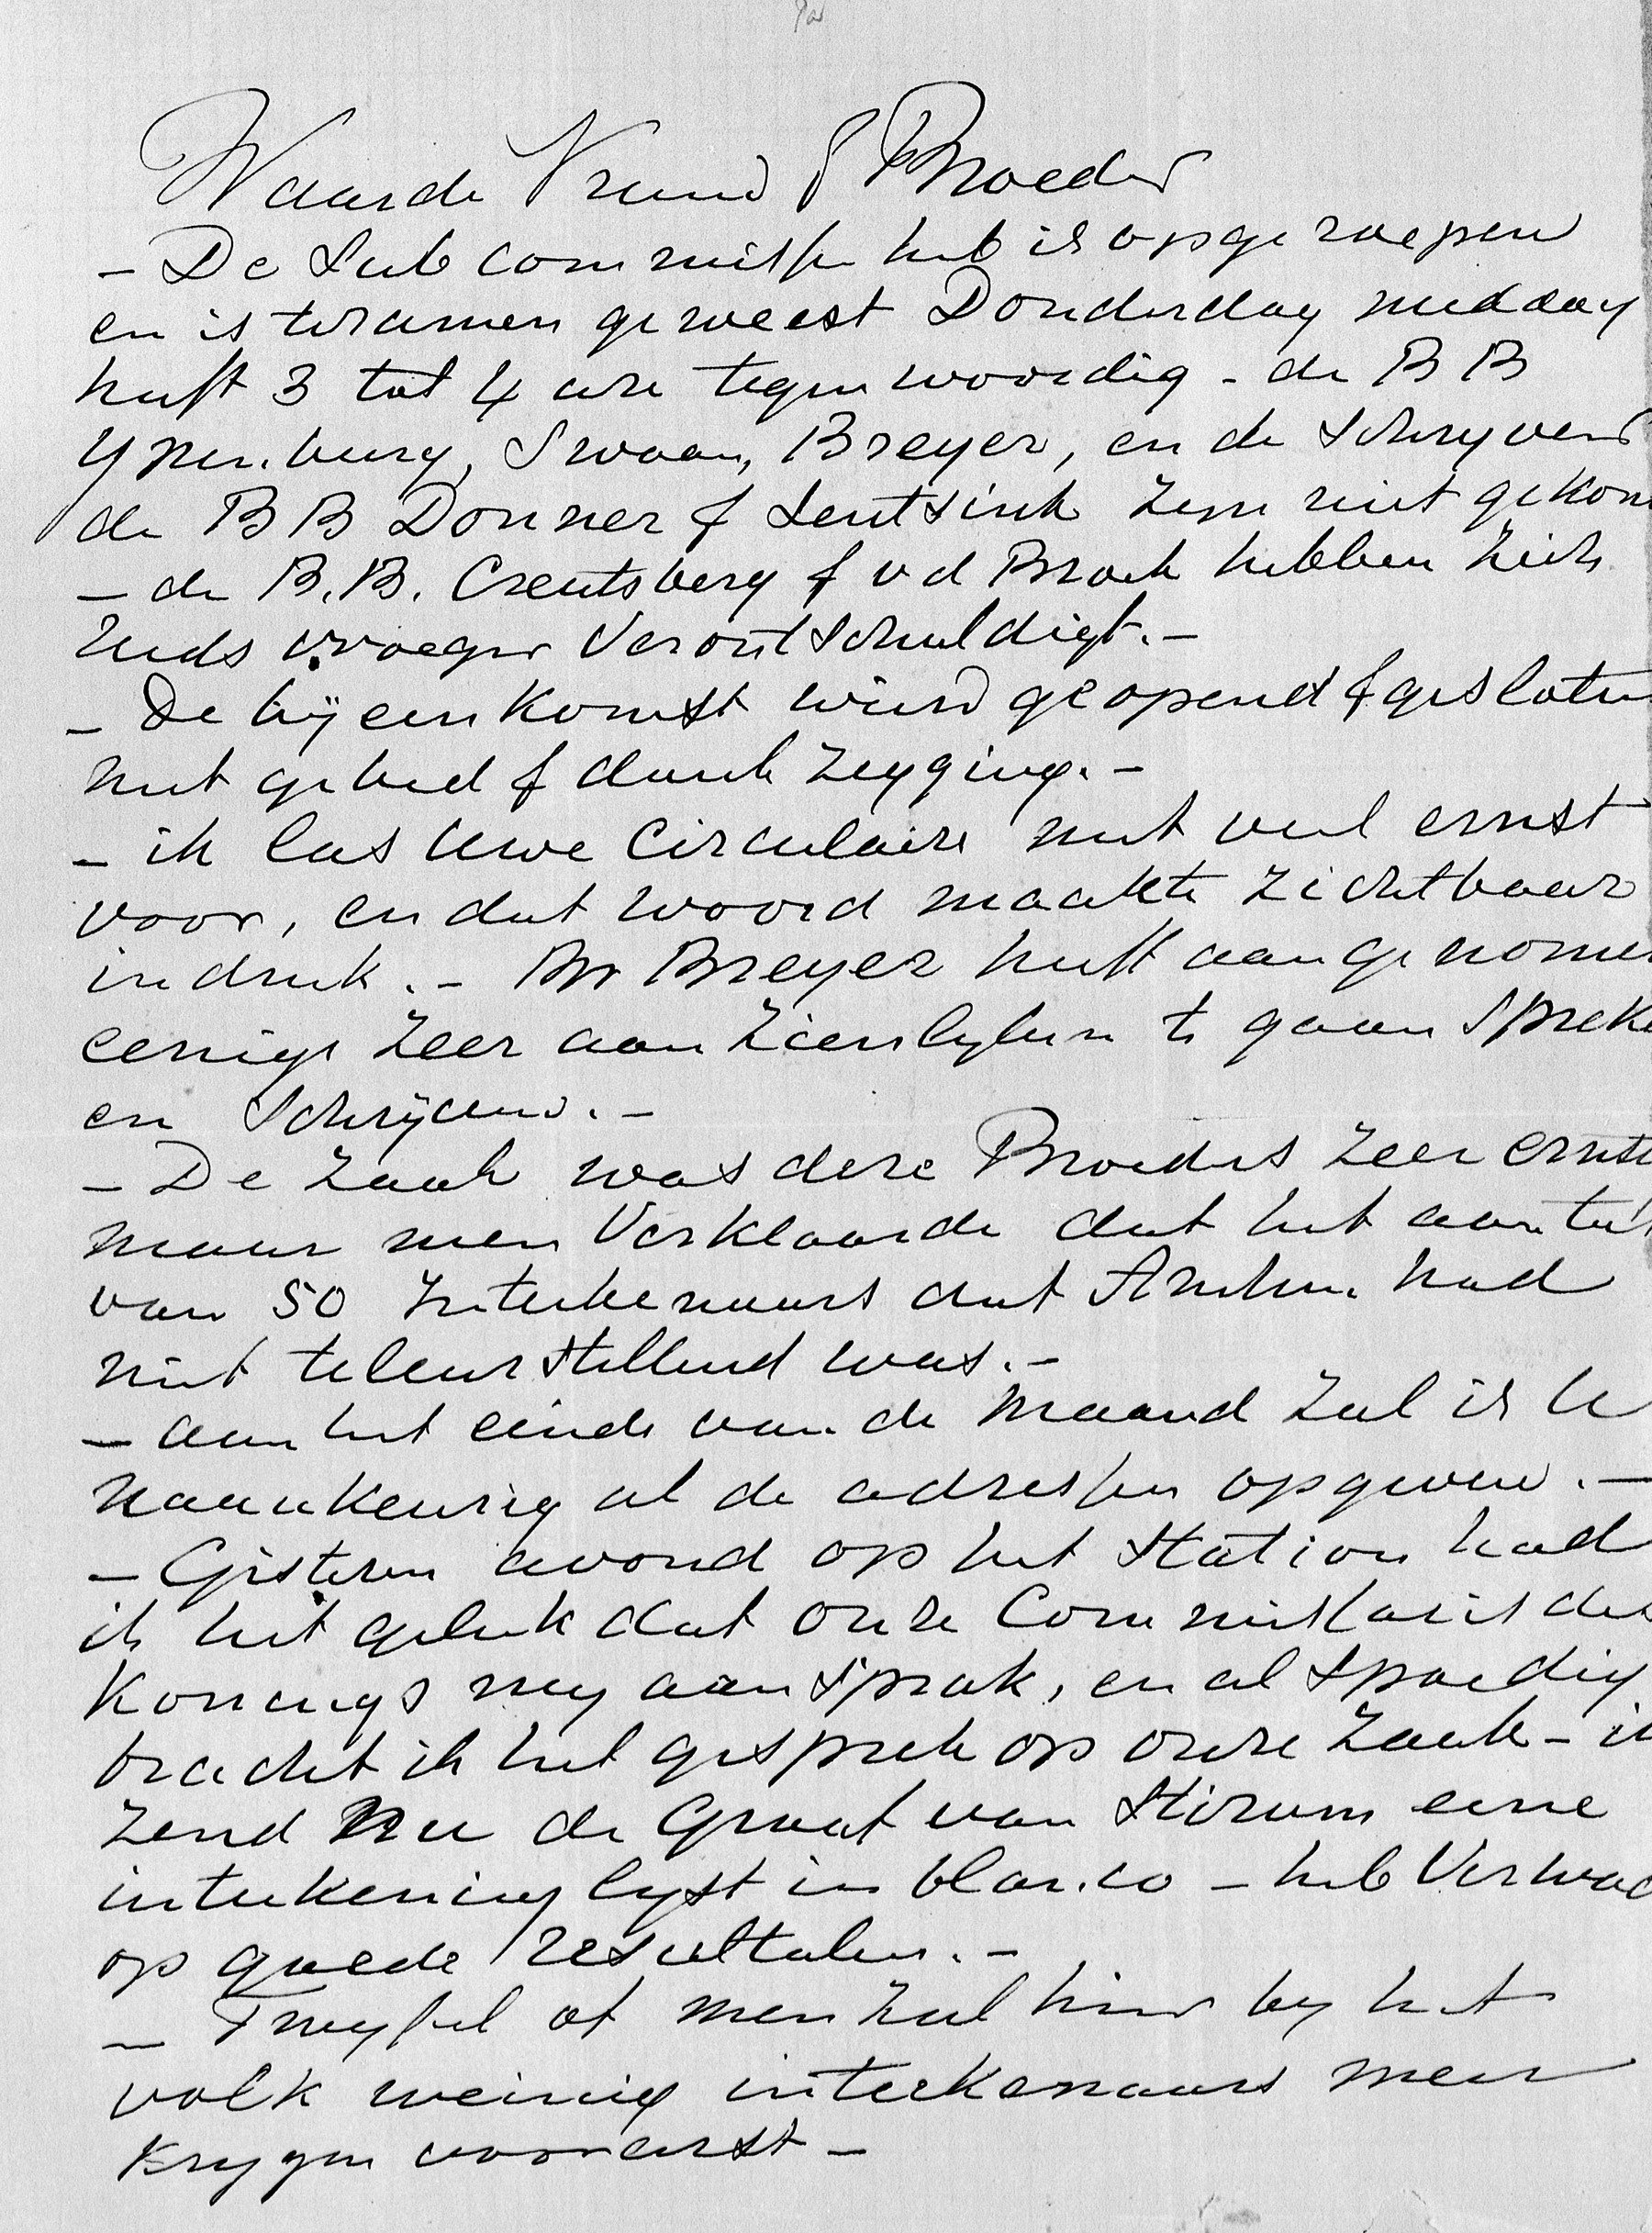 Waarde Vriend & Broeder
- De Sub commissie heb ik opgeroepen
en is te samen geweest Donderdag middag
half 3 tot 4 ure tegenwoordig - de B B
Ypenburg, Swaan, Breyer, en de Schryver
de B B Donner & Lentsink zyn niet gekom
- de B.B. Creutsberg & v d Broek hebben zich
reeds vroeger Verontschuldigt. -
- De bijeenkomst wierd geopend & gesloten
met gebed & dankzegging. -
- ik las Uwe Circulaire met veel ernst
voor, en dat woord maakte zichtbaar
indruk. - Br Breyer heeft aangenomen
eenige zeer aanzienlyken te gaan spreke
en Schrijven. -
- De zaak was deze Broeders zeer ernsti
maar men Verklaarde dat het aantal
van 50 Intekenaars dat Arnhem had
niet teleurstellend was. -
- aan het einde van de maand zal ik U
naauwkeurig al de adressen opgeven. -
- Gisteren avond op het Station had
ik het geluk dat onze Commissaris des
Konings my aansprak, en al spoedig
bracht ik het gesprek op onze zaak - ik
zend nu de Graaf van Stirum eene
intekening lyst in blanco - heb Verwac
op goede resultaten. -
- Twyfel of men zal hier by het
volk weinig intekenaars meer
krygen vooreerst -